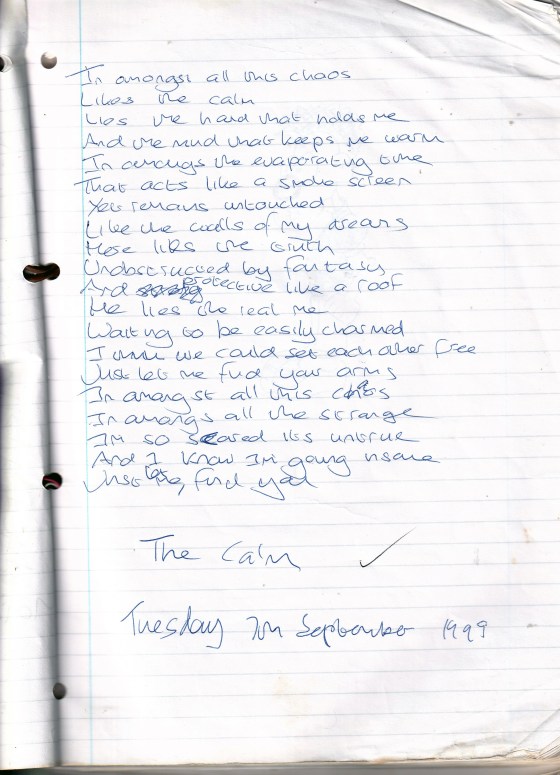 In amongst all this chaos
Likes the calm
Lies the hand that holds me
And the mind that keeps me warm
In amongs the evaporating time
That acts like a smoke screen
Yet remains untouched
Like the walls of my dreams
Here likes the truth
Unobstructed by fantasy
And protective like a roof
He lies the real me
Waiting to be easily charmed
I think we could set each other free
Just let me find your arms
In amongst all this chaos
In amongs all the strange
I'm so scared its untrue
And I know I'm going insane
Just let me, find you
The Calm
Tuesday 7th September 1999